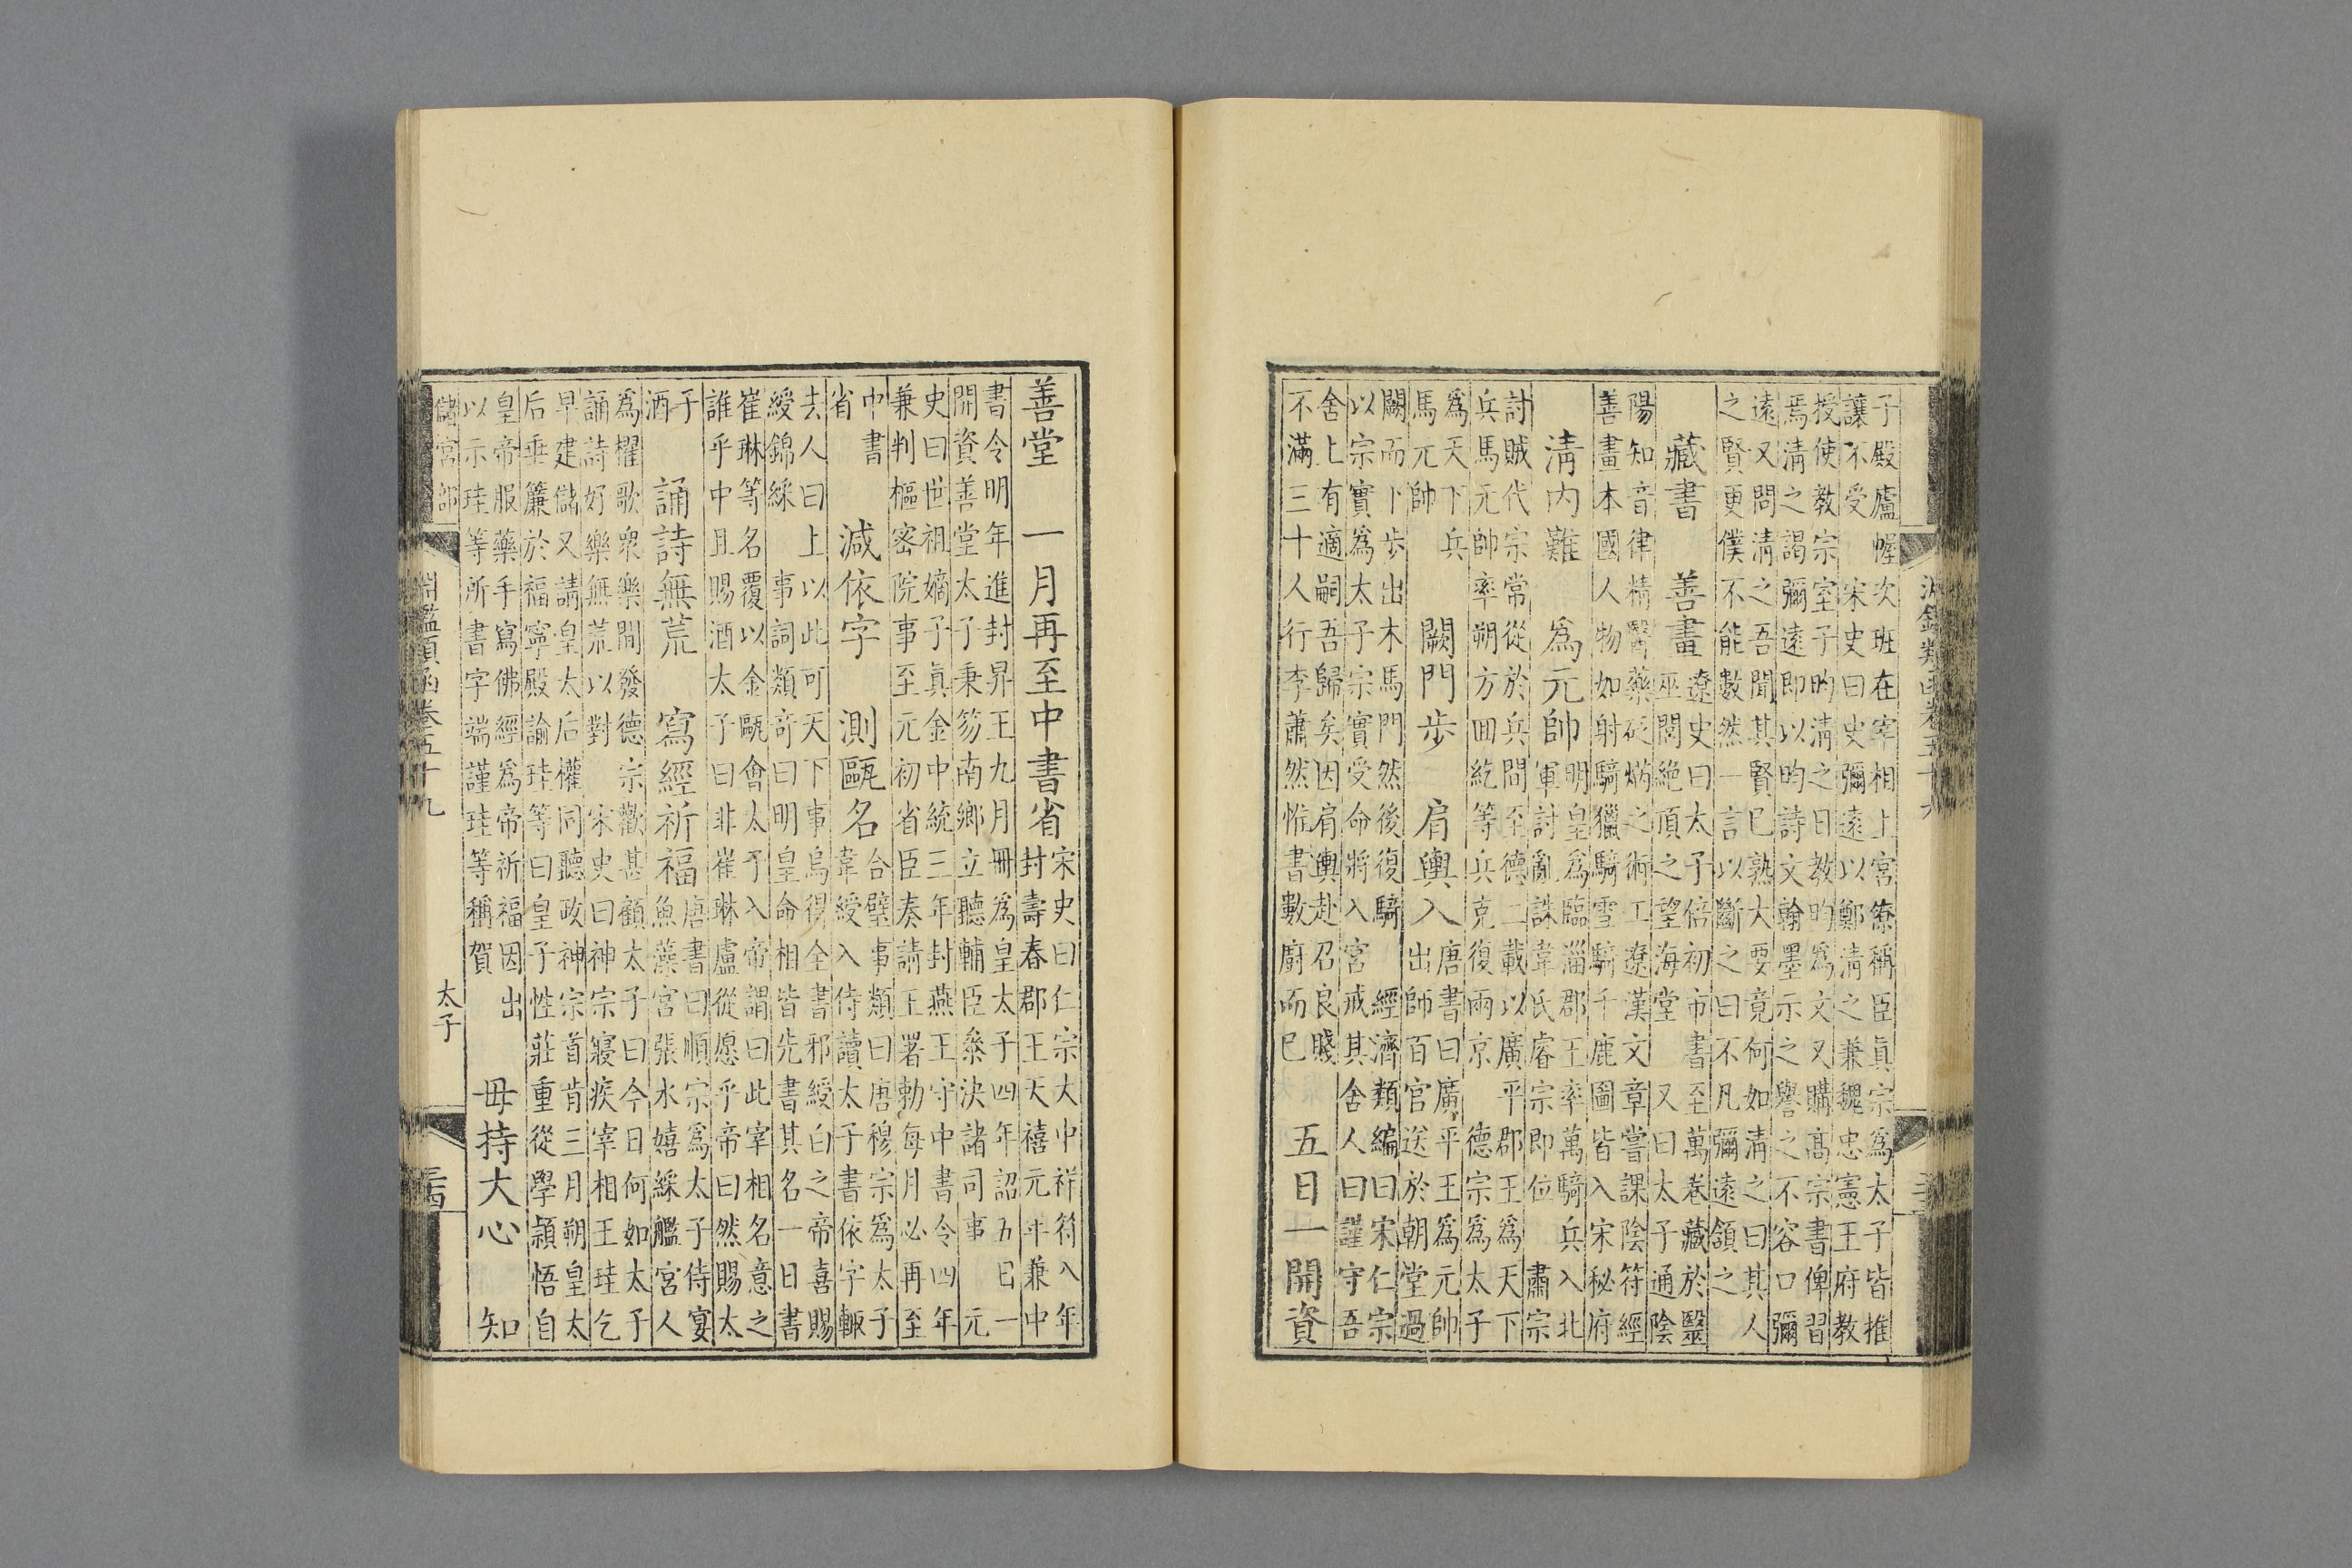 子殿廬幄次班在宰相上宮僚稱臣真宗為太子皆推
讓不受　宋史曰史彌遠以鄭清之兼魏忠憲王府教
授使教宗室子昀清之日教昀為文又購高宗書俾習
焉清之謁彌遠即以昀詩文翰墨示之譽之不容口彌
遠又問清之吾聞其賢已熟大要竟何如清之曰其人
之賢更僕不能數然一言以斷之曰不凡彌遠頷之
藏書　善畫　遼史曰太子倍初市書至萬卷藏於醫
巫閭絶頂之望海堂　又曰太子通陰
陽知音律精醫藥砭焫之術工遼漢文章嘗課陰符經
善畫本國人物如射騎獵騎雪騎千鹿圖皆入宋秘府
清內難　為元帥　明皇為臨淄郡王率萬騎兵入北
軍討亂誅韋氏睿宗即位　肅宗
討賊代宗常從於兵間至德二載以廣平郡王為天下
兵馬元帥率朔方回紇等兵克復兩京　德宗為太子
為天下兵
馬元帥　闕門步　肩輿入　唐書曰廣平王為元帥
出師百官送於朝堂過
闕而下步出木馬門然後復騎　經濟類編曰宋仁宗
以宗實為太子宗實受命將入宮戒其舍人曰謹守吾
舍上有適嗣吾歸矣因肩輿赴召良賤
不滿三十人行李蕭然惟書數廚而已　五日一開資
善堂　一月再至中書省　宋史曰仁宗大中祥符八年
封壽春郡王天禧元年兼中
書令明年進封昇王九月冊為皇太子四年詔五日一
開資善堂太子秉笏南鄉立聽輔臣叅決諸司事　元
史曰世祖嫡子真金中統三年封燕王守中書令四年
兼判樞密院事至元初省臣奏請王署勅每月必再至
中書
省　減依字　測甌名　合璧事類曰唐穆宗為太子
韋綬入侍讀太子書依字輒
去人曰上以此可天下事烏得全書邪綬白之帝喜賜
綬錦綵　事詞類奇曰明皇命相皆先書其名一日書
崔琳等名覆以金甌會太子入帝謂曰此宰相名意之
誰乎中且賜酒太子曰非崔琳盧從愿乎帝曰然賜太
子
酒　誦詩無荒　寫經祈福　唐書曰順宗為太子侍宴
魚藻宮張水嬉綵艦宮人
為櫂歌衆樂間發德宗歡甚顧太子曰今日何如太子
誦詩好樂無荒以對　宋史曰神宗寢疾宰相王珪乞
早建儲又請皇太后權同聽政神宗首肯三月朔皇太
后垂簾於福寧殿諭珪等曰皇子性莊重從學穎悟自
皇帝服藥手寫佛經為帝祈福因出
以示珪等所書字端謹珪等稱賀　毋持大心　知
儲宮部　淵鑑類函卷五十九　太子